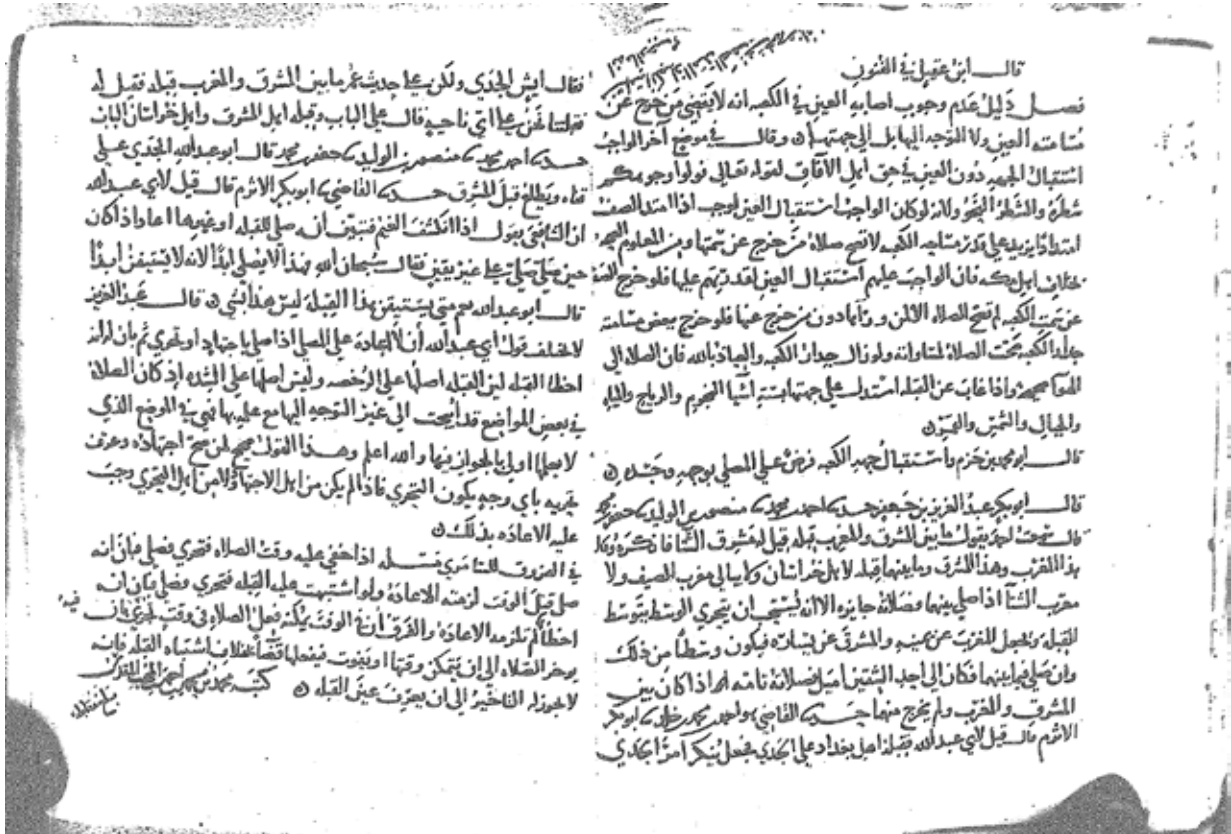 قال ابن عقيل في الفنون
فصل دليل عدم وجوب اصابه العين في الكعبه انه لا يقتضي من خرج عن
مسامته العين ولا التوجه اليها بل الى جهتها ٥ وقال في موضع آخر الواجب
استقبال الجهه دون العين في حق اهل الآفاق لقوله تعالى فولوا وجوهكم
شطره والشطر النحو ولانه لو كان الواجب استقبال العين لوجب اذا امتد الصف
امتدادا يزيد على قدر مساحه الكعبه لا تصح صلاة من خرج عن سمتها ومن المعلوم
بخلاف اهل مكه فان الواجب عليهم استقبال العين لقدرتهم عليها فلو خرج
عن سمت الكعبه لم تصح الصلاه فلو خرج بعض مسامته
ولو زال جدار الكعبه والعياذ بالله فان الصلاه الى
الهوا صحيحه واذا غاب عن القبله استدل على جهتها بستة اشيا النجوم والرياح والمياه
والجبال والشمس والقمر ٥
قال ابو محمد بن حزم واستقبال جهه الكعبه فرض على المصلي بوجهه وجسده ٥
قال ابو بكر عبد العزيز بن جعفر احمد بن محمد منصور بن الوليد جعفر بن محمد
قال سمعت احمد يقول ما بين المشرق والمغرب قبله قيل له مشرق الشتا
هذا المغرب وهذا المشرق وما بينهما قبله لاهل خراسان مغرب الصيف ولا
مغرب الشتا اذا صلى بينهما فصلاته جايزه الا انه يستحب ان يتحرى الوسط يتوسط
القبله ويجعل المغرب عن يمينه والمشرق عن يساره فيكون وسطا من ذلك
وان صلى فيما بينهما فكان الى احد الشقين اميل فصلاته تامه اذا كان بين
المشرق والمغرب ولم يخرج منهما القاضي احمد بن محمد ابو بكر
الاثرم قال قيل لابي عبد الله فقبلة اهل بغداد على الجدي فجعل ينكر امر الجدي
فقال ايش الجدي ولكن على حديث عمر ما بين المشرق والمغرب قبله فقيل له
قبلتنا نحن على اي ناحيه قال على الباب وقبله اهل المشرق واهل خراسان الباب
احمد بن محمد منصور بن الوليد جعفر بن محمد قال ابو عبد الله الجدي على
قفاه ويطلع قبل المشرق القاضي ابو بكر الاثرم قال قيل لابي عبد الله
ان الشافعي يقول اذا انكشف الغيم فتبين انه صلى للقبله او غيرها اعاد اذا كان
حين صلى صلى على غير يقين فقال سبحان الله هذا لا يصلي ابدا لانه لا يستيقن ابدا
قال ابو عبد الله نعم متى يستيقن بهذا القبله ليس هذا بشي ٥ قال عبد العزيز
لا تختلف قول ابي عبد الله أن لا اعادة على المصلي اذا صلى باجتهاد او تحرى ثم بان له انه
اخطا القبله لان القبله اصلها على الرخصه وليس اصلها على الشده اذ كان الصلاة
في بعض المواضع قد أبيحت الى غير التوجه اليها مع علمه بها فهي في الموضع الذي
لا يعلمها اولى بالجواز فيها والله اعلم وهذا القول صحيح لمن صح اجتهاده وعرف
تحريه باي وجه يكون التحري فاذا لم يكن من اهل الاجتهاد ولا من اهل التحري وجب
عليه الاعاده بذلك ٥
في الفروق للسامري مسله اذا خفي عليه وقت الصلاه فتحرى فصلى فبان انه
صلى قبل الوقت لزمته الاعادة ولو اشتبهت عليه القبله فتحرى وصلى فبان انه
اخطأ لم تلزمه الاعاده والفرق ان في الوقت يمكنه فعل الصلاة في وقت
يؤخر الصلاه الى ان يتمكن وقتها او يفوت فيفعلها قضا بخلاف اشتباه القبله فانه
لا يجوز له التاخير الى ان يعرف عين القبله ٥ كتبه محمد بن